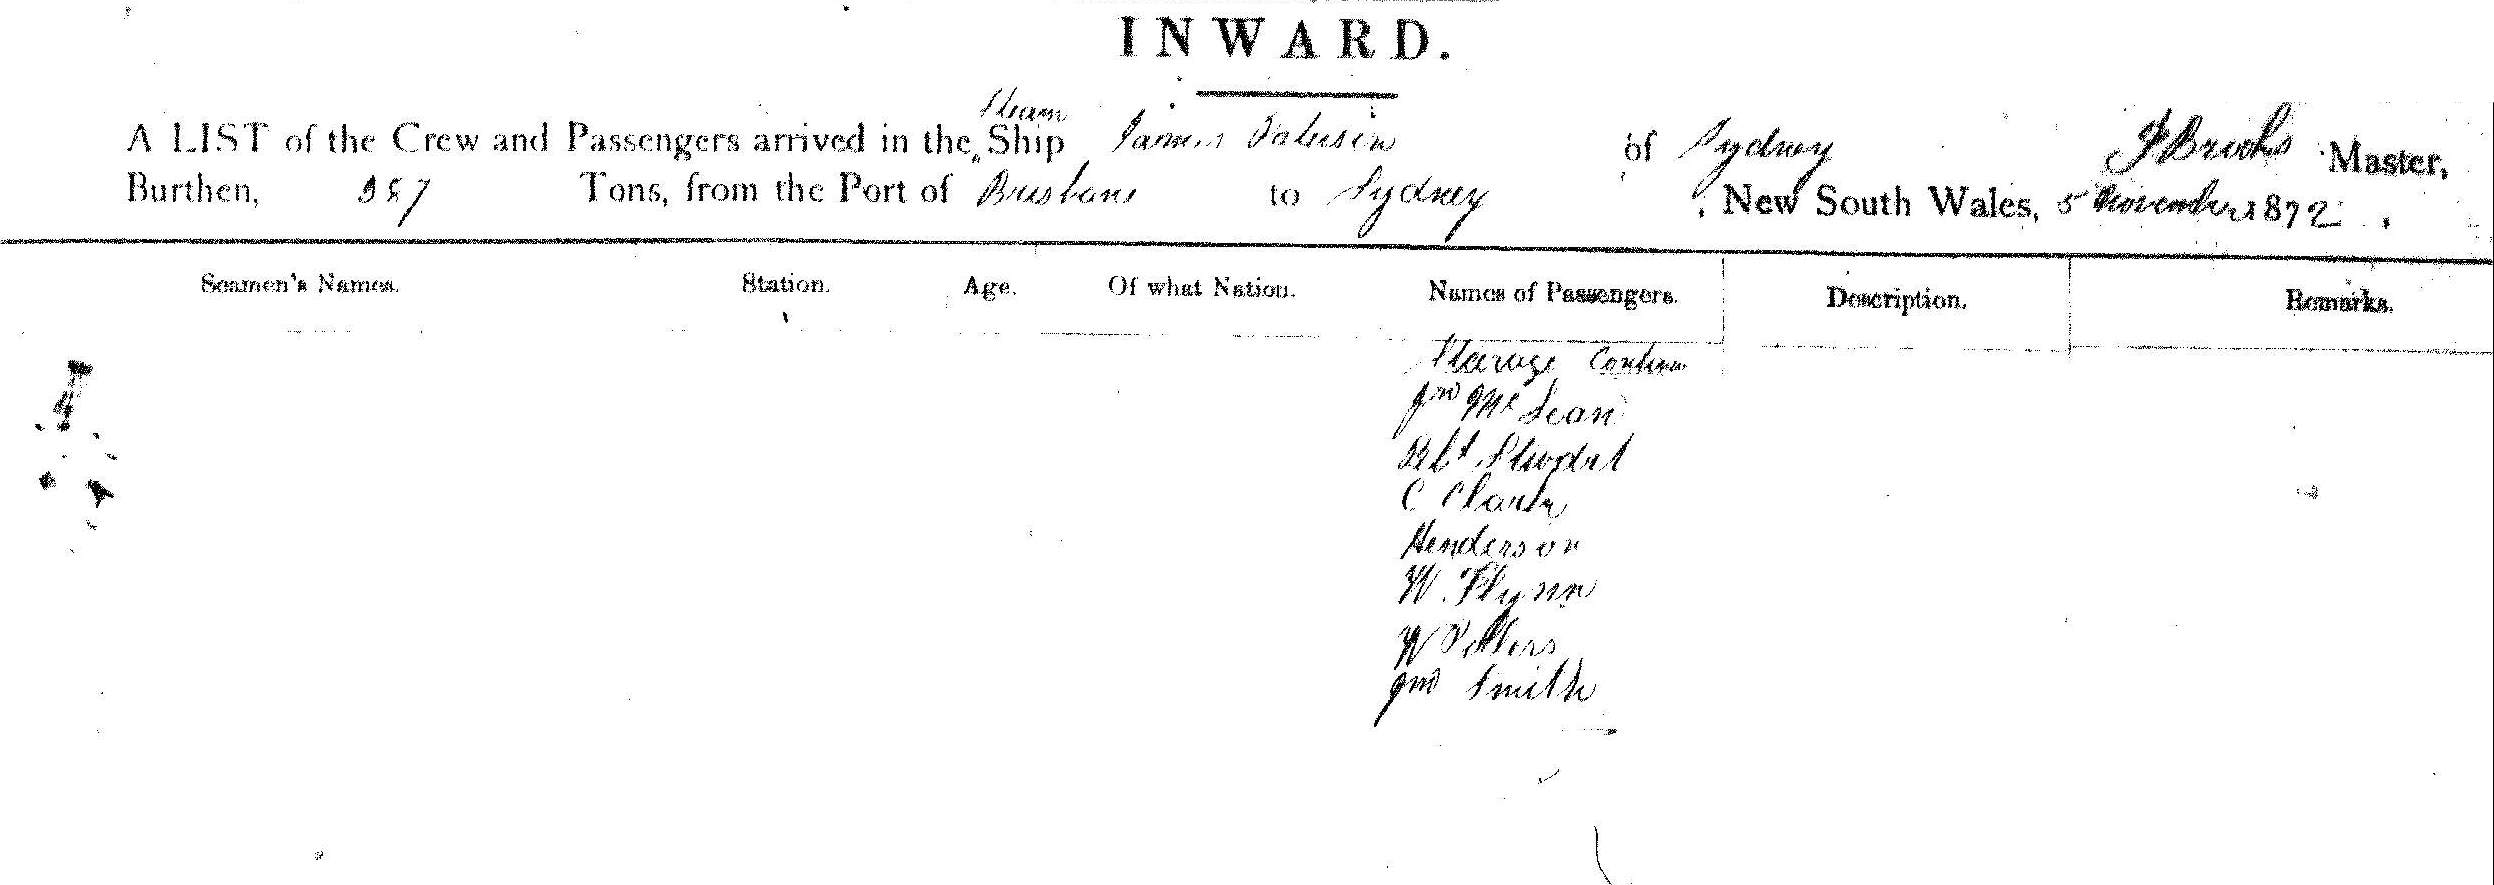 INWARD.
Steam
A LIST of the Crew and Passengers arrived in the Ship James Paterson of Sydney J Brooks Master,
Burthen, 387 Tons, from the Port of Brisbane to Sydney, New South Wales, 5 November 1872.
Seamen's Names. Station. Age. Of what Nation. Names of Passengers. Description. Remarks.
Steerage Contin
Jno McLean
Robt
C Clark
Henderson
W. Flynn
W Peters
Jno Smith